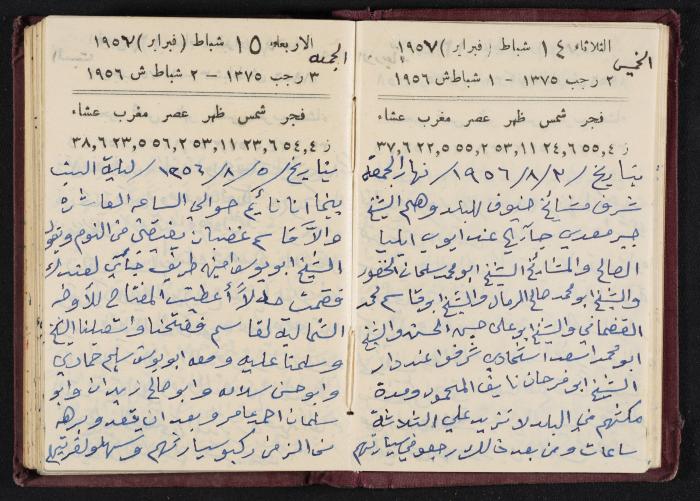 الثلاثاء ١٤ شباط (فبراير) ١٩٥٧
الخميس
٢ رجب ١٣٧٥ – ١ شباط ش ١٩٥٦
فجر شمس ظهر عصر مغرب عشاء
٤,٥٥ ٦,٢٤ ١١,٥٣ ٢,٥٥ ٥,٢٢ ٦,٣٧
بتاريخ /٣/٨/١٩٥٦/ نهار الجمعة
شرف مشايخ ضيوف للبلد وهم الشيخ
جبر معدي عند ايوب ايليا
الصالح والمشايخ الشيخ ابو محمد سلمان الخفور
والشيخ ابو محمد صالح الرمال والشيخ ابو قاسم محمد
القضماني والشيخ ابو علي حسين الحسن والشيخ
ابو محمد اسعد شرفوا عند دار
الشيخ ابو فرحان نايف المحمود ومدة
مكثهم في البلد لا تزيد على الثلاثة
ساعات ومن بعد ذالك رجعو في سيارتهم
الاربعاء ١٥ شباط (فبراير) ١٩٥٧
الجمعه
٣ رجب ١٣٧٥ – ٢ شباط ش ١٩٥٦
فجر شمس ظهر عصر مغرب عشاء
٤,٥٤ ٦,٢٣ ١١,٥٣ ٢,٥٦ ٥,٢٣ ٦,٣٨
بتاريخ /٥/٨/١٩٥٦/ ليلة السبت
بينما انا نائم حوالي الساعه العاشرة
والا قاسم غضبان من النوم ويقول
الشيخ ابو يوسف امين طريف لعندك
فقمت حالاً أعطيت المفتاح للأوضه
الشمالية لقاسم ففتحنا واستقبلنا الشيخ
وسلمنا عليه ومعه ابو يوسف سليم حمادي
وابو حسن سلامه وابو صالح زيدان وابو
سلمان احمد عامر وبعد ان قعد وبرهه
من الزمن ركبو سيارتهم وسهلو لقريتهم